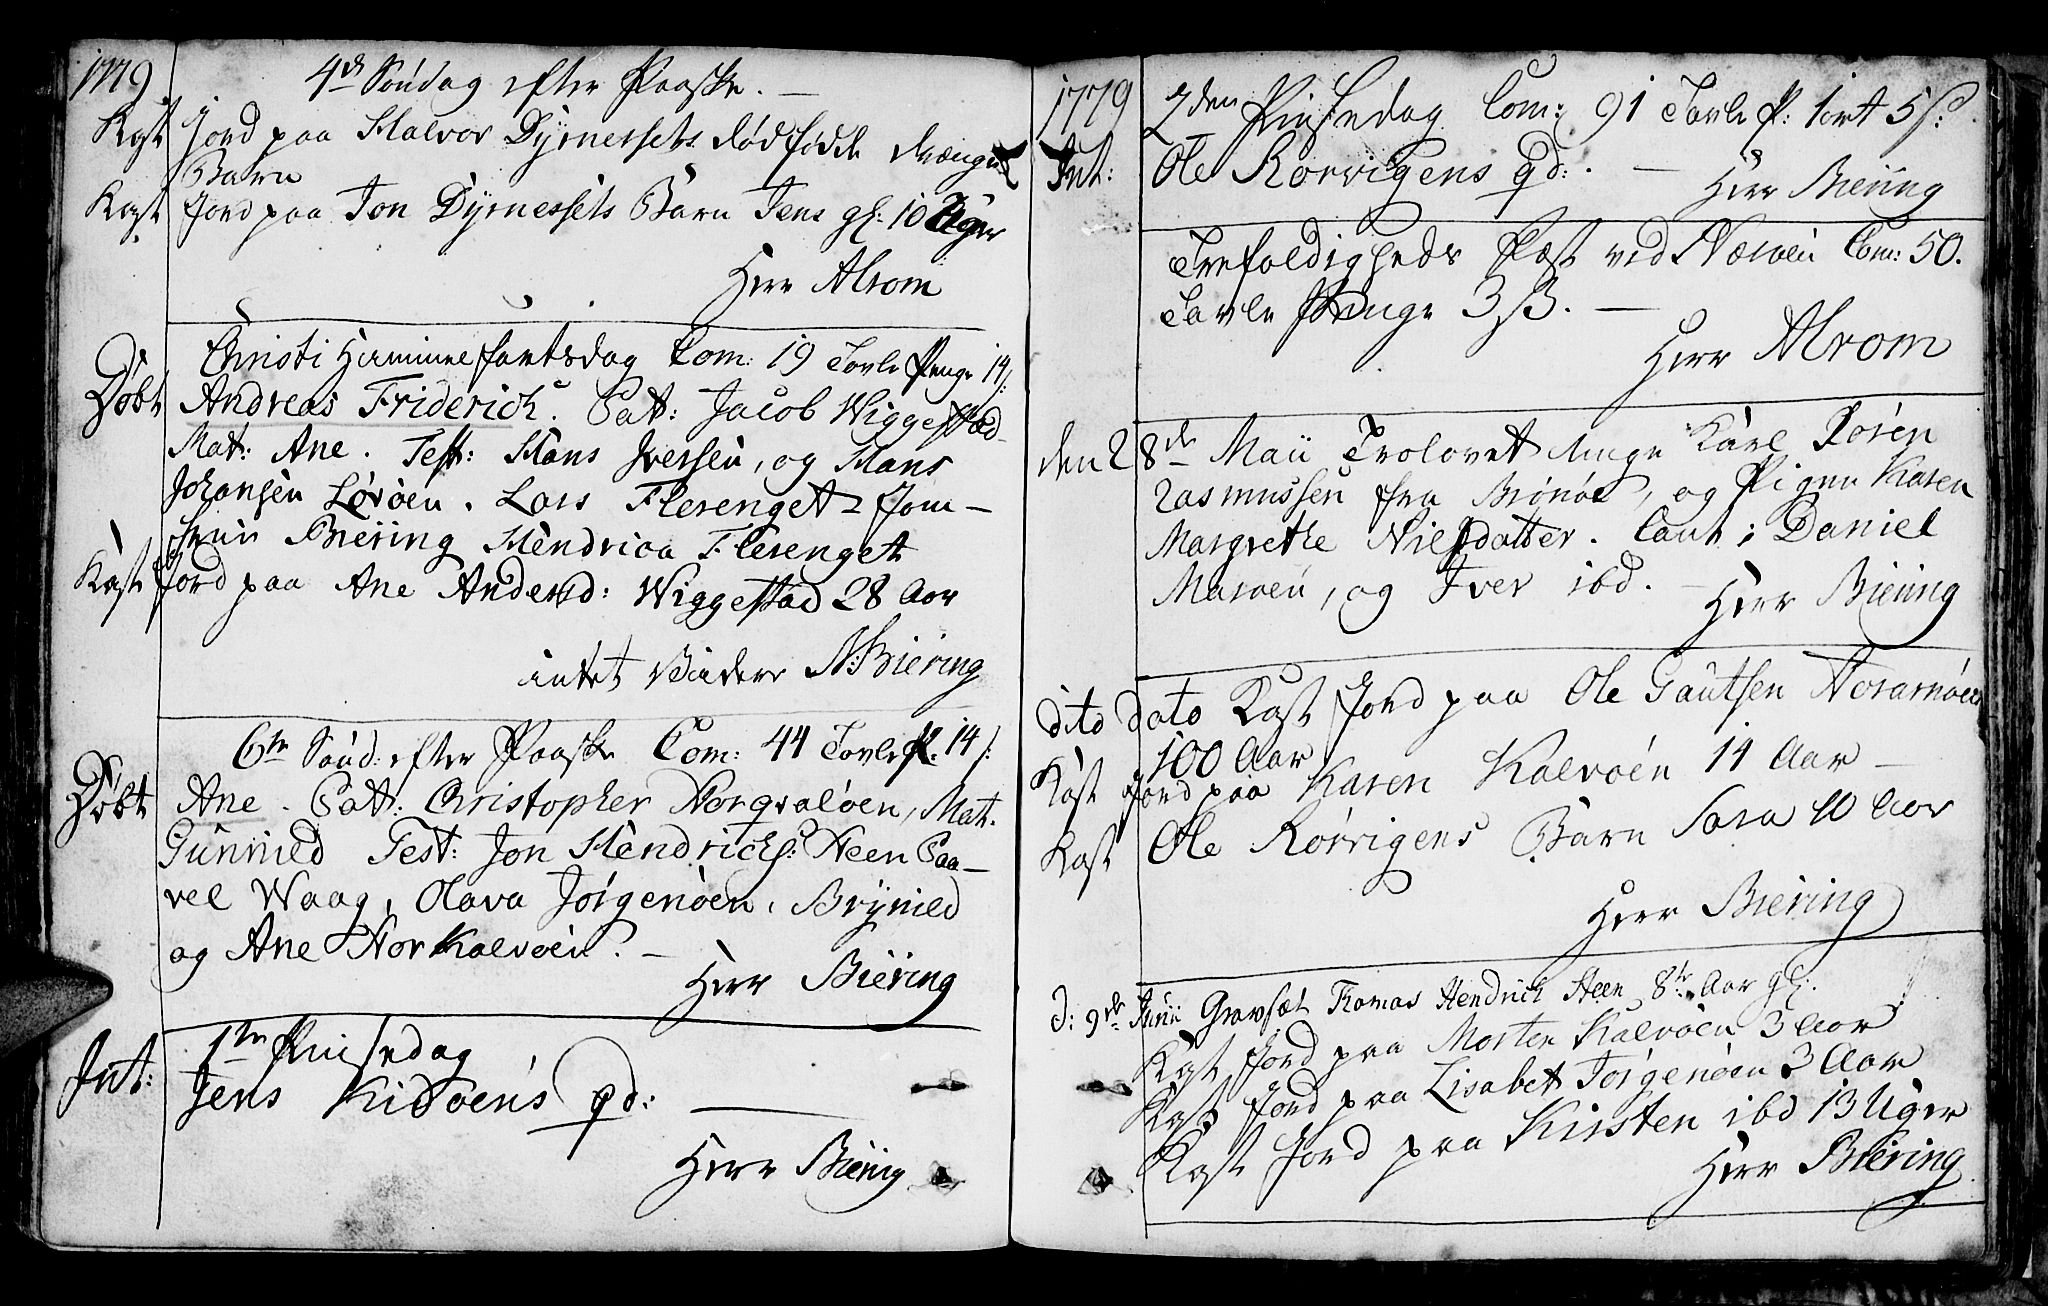 1779
4de Søndag efter Paaske. —
Kast Jord paa Halvor Dyrnessets dødfødde drænge
Barn
Kast Jord paa Jon Dyrnessets Barn Jens gl: 10 Uger
Herr Alrom
Christi Himmelfartsdag Com: 19 Tavle Penge 14 s:
Døbt Andreas Friderich. Pat: Jacob Wiggestad
Mat: Ane. Test: Hans Iversen, og Hans
Johansen Lørøen. Lars Flerenget Jom-
frue Biering Hendrica Flerenget
Kast Jord paa Ane Andersd: Wiggestad 28 Aar
intet Videre N: Biering
6te Sønd: efter Paaske Com: 44 Tavle P: 14 s:
Døbt Ane. Pat: Christopher Norqvaløen, Mat.
Gunnild Test: Jon Hendrichs: Heen Paa-
vel Waag, Olava Jørgenøen, Brynild
og Ane Norkalvøen. —
Herr Biering
1te Pinsedag
Int: Jens Kidøens qd: —
Herr Biering
1779
2den Pinsedag Com: 91 Tavle P: 1 ort 5 s:
Int: Ole Rørvigens qd: . — Herr Biering
Trefoldigheds Fæst ved Næsøen Com: 50.
Tavle Penge 3 s. —
Herr Alrom
den 28de Maii Trolovet unge Karl Søren
Rasmussen fra Brønøe, og Pigen Karen
Margrethe Nielsdatter. Caut: Daniel
Masøen, og Iver ibd. — Herr Biering
dito dato Kast Jord paa Ole Gautsen Norarnøen
100 Aar
Kast Jord paa Karen Kalvøen 14 Aar —
Kast Ole Rørvigens Barn Sara 10 Aar
Herr Biering
d: 9de Junii Gravsæt Thomas Hendrich Heen 8te Aar gl.
Kast Jord paa Morten Kalvøen 3 Aar
Kast Jord paa Lisabet Jørgenøen 3 Aar
Kast Jord paa Kirsten ibd 13 Uger
Herr Biering